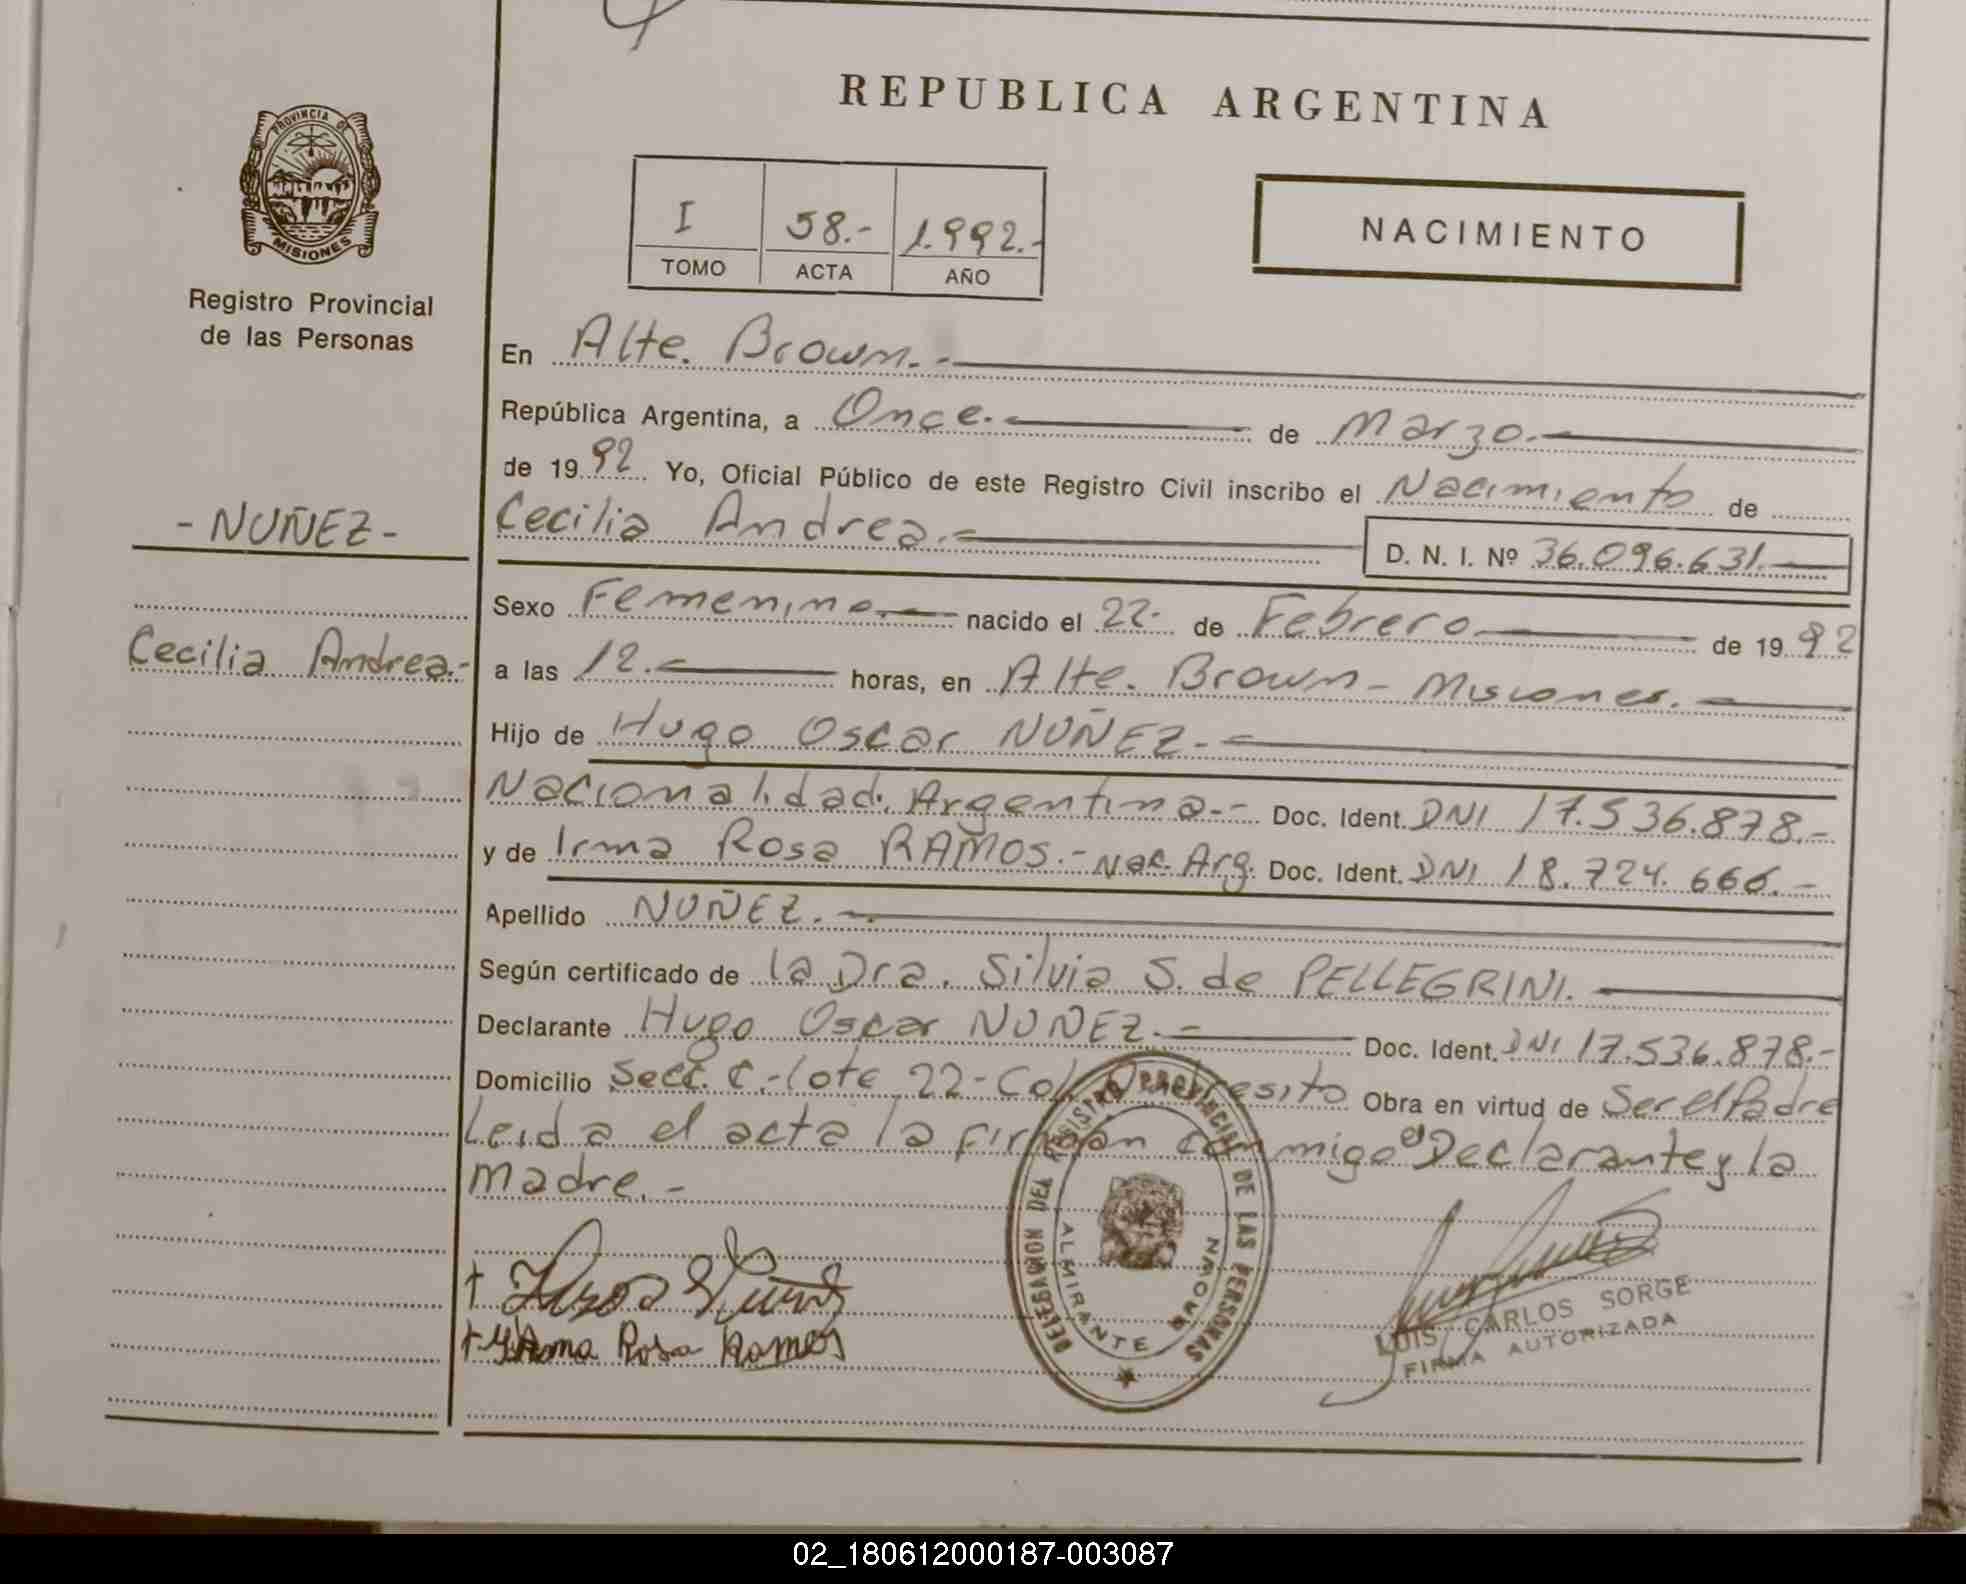 REPUBLICA ARGENTINA
PROVINCIA DE
MISIONES
Registro Provincial
de las Personas
I 58.- 1.992.-
TOMO ACTA AÑO
NACIMIENTO
- NUÑEZ -
Cecilia Andrea.-
En Alte. Brown.-
República Argentina, a Once.- de Marzo.-
de 1992 Yo, Oficial Público de este Registro Civil inscribo el Nacimiento de
Cecilia Andrea.- D. N. I. Nº 36.096.631.-
Sexo Femenino.- nacido el 22- de Febrero de 1992
a las 12.- horas, en Alte. Brown - Misiones.-
Hijo de Hugo Oscar NUÑEZ.-
Nacionalidad. Argentina.- Doc. Ident. DNI 17.536.878.-
y de Irma Rosa RAMOS.- Nac. Arg. Doc. Ident. DNI 18.724.666.-
Apellido NUÑEZ.-
Según certificado de la Dra. Silvia S. de PELLEGRINI.
Declarante Hugo Oscar NUÑEZ.- Doc. Ident. DNI 17.536.878.-
Domicilio Secc. C.-lote 22- Col. Obra en virtud de Ser el Padre
Leida el acta la firman conmigo el Declarante y la
madre.-
DELEGACION DEL REGISTRO PROVINCIAL DE LAS PERSONAS
ALMIRANTE BROWN
Rosa Ramos
LUIS CARLOS SORGE
FIRMA AUTORIZADA
02_180612000187-003087